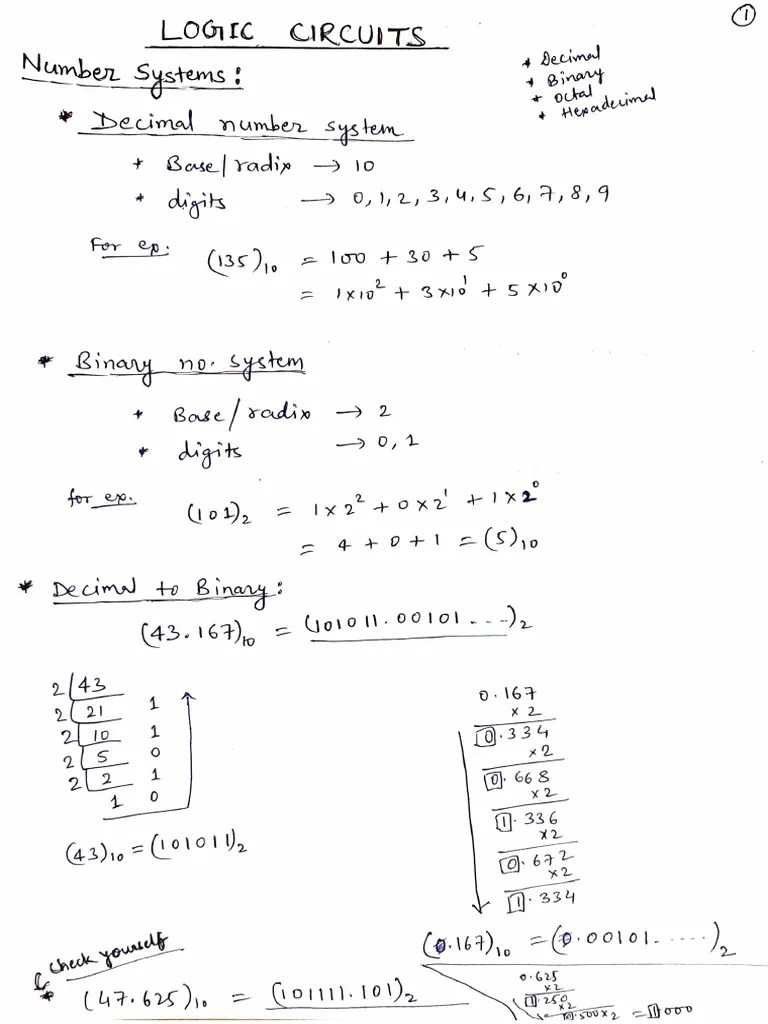 1
LOGIC CIRCUITS
Number Systems:
* Decimal
* Binary
* Octal
* Hexadecimal
* Decimal number system
* Base/radix → 10
* digits → 0, 1, 2, 3, 4, 5, 6, 7, 8, 9
For ex. (135)₁₀ = 100 + 30 + 5
= 1×10² + 3×10¹ + 5×10⁰
* Binary no. system
* Base/radix → 2
* digits → 0, 1
for ex. (101)₂ = 1×2² + 0×2¹ + 1×2⁰
= 4 + 0 + 1 = (5)₁₀
* Decimal to Binary:
(43.167)₁₀ = (101011.00101...)₂
2 43
2 21 1
2 10 1
2 5 0
2 2 1
1 0
(43)₁₀ = (101011)₂
0.167
×2
0.334
×2
0.668
×2
1.336
×2
0.672
×2
1.334
(0.167)₁₀ = (0.00101.....)₂
check yourself
* (47.625)₁₀ = (101111.101)₂
0.625
×2
1.250
×2
0.500×2 = 1.000